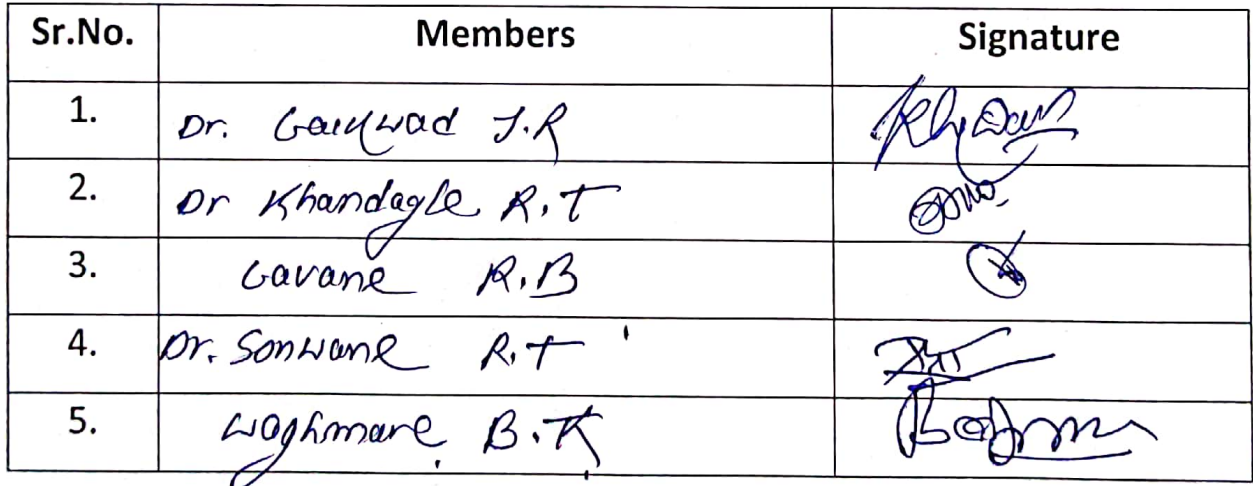 Sr.No. Members Signature
1. Dr. Gaikwad J.R
2. Dr Khandagle R.T
3. Gavane R.B
4. Dr. Sonwane R.T
5. Waghmare B.K